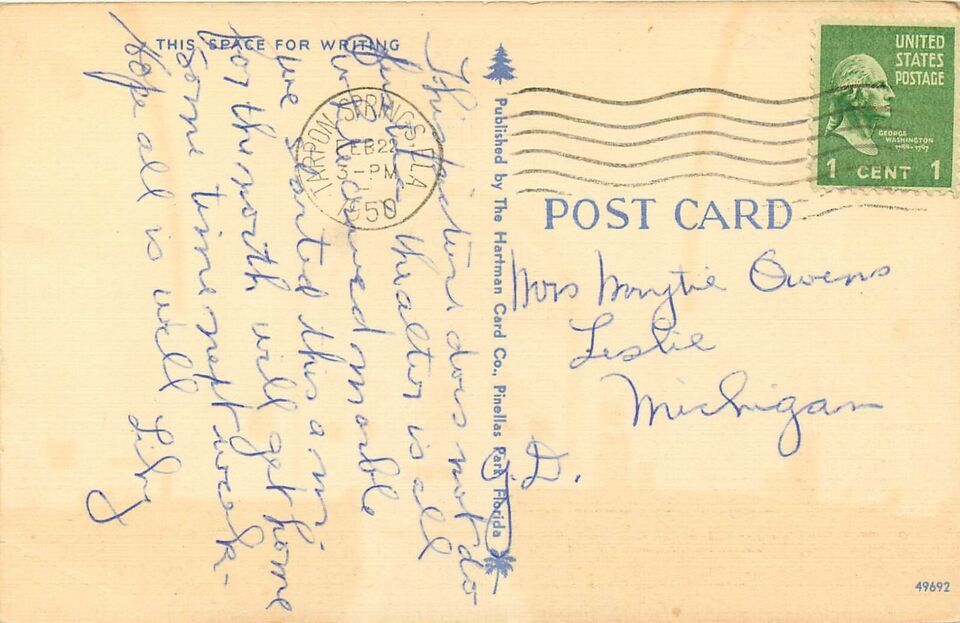 THIS SPACE FOR WRITING
This picture does not do
justice theatter is all
in led carved marble
we started this a.m.
for the north will get home
some time next week-
Hope all is well
Libby
TARPON SPRINGS, FLA.
FEB 22
3-PM
1950
Published by The Hartman Card Co., Pinellas Park, Florida
UNITED
STATES
POSTAGE
GEORGE
WASHINGTON
1789-1797
1 CENT 1
POST CARD
Mrs Owens
Leslie
Michigan
49692